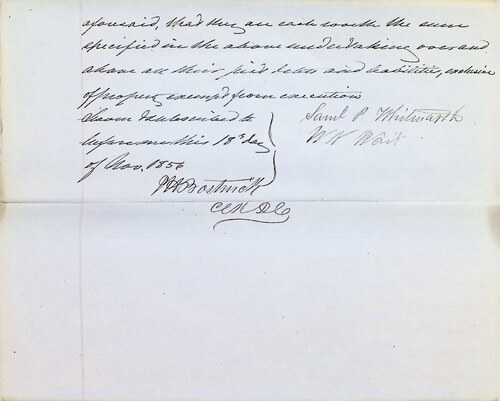 aforesaid, that they are each worth the sum
specified in the above undertaking over and
above all their just debts and liabilities, exclusive
of property exempt from execution
Sworn & subscribed to
before me this 18th day
of Nov. 1856
Saml P Whitmarsh
W W Wait
Bostwick
Clk D C